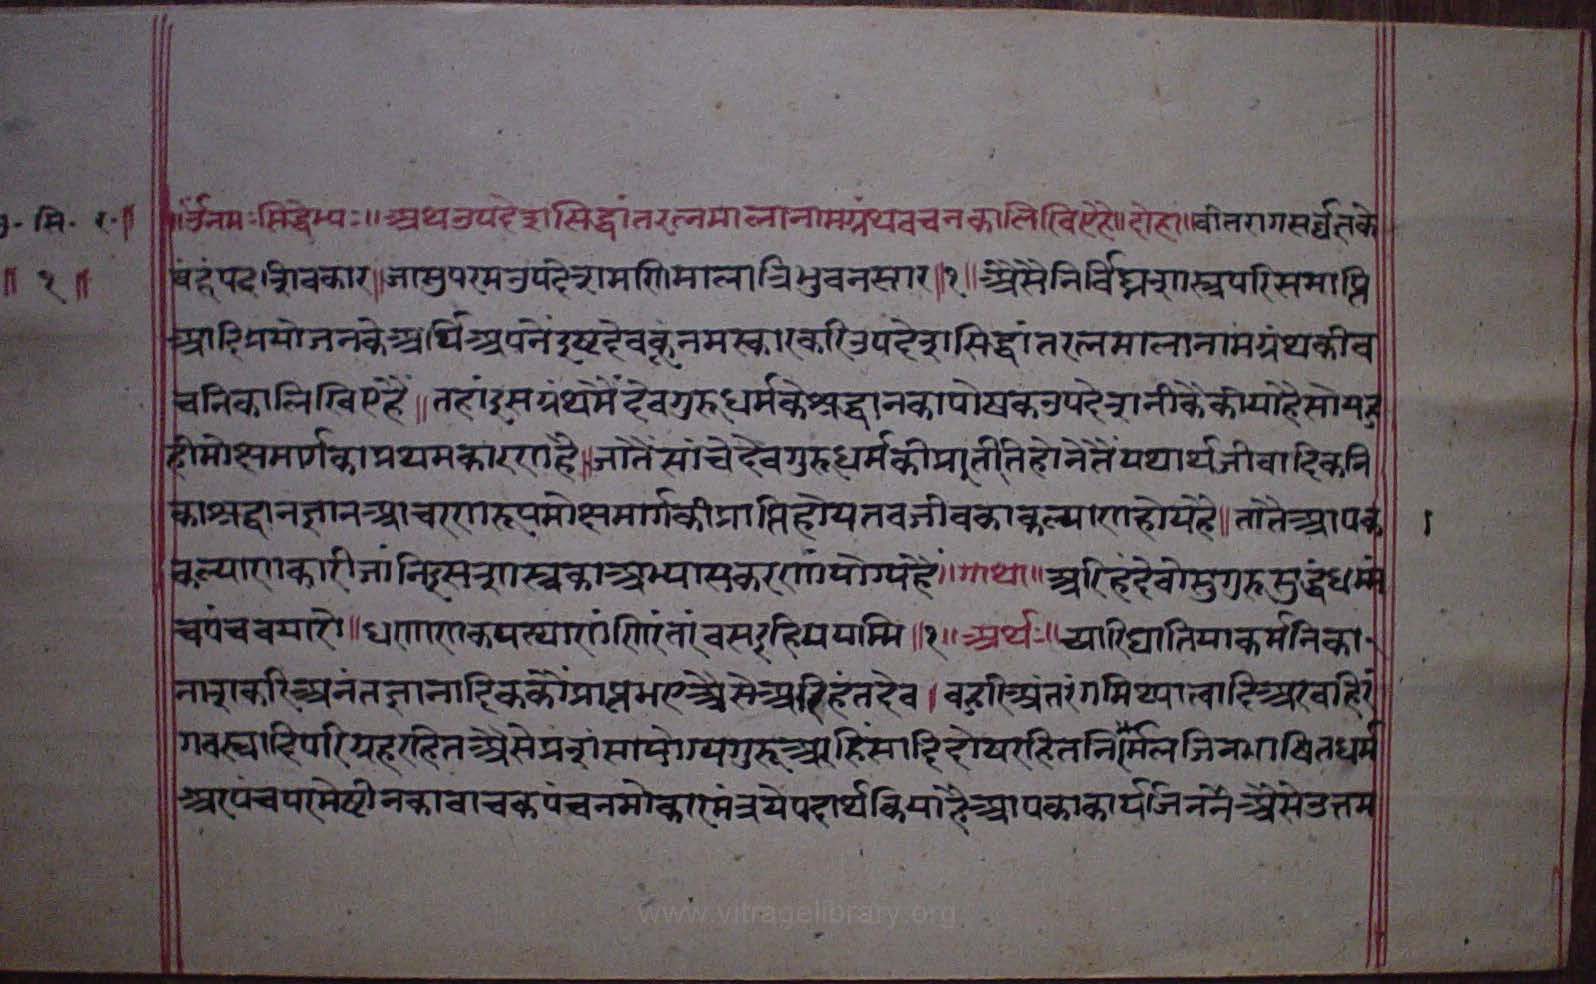 उ. सि. र. ॥ १ ॥
॥ ॐनमःसिद्धेभ्यः॥ अथउपदेशसिद्धांतरत्नमालानामग्रंथवचनकालिखिएहै॥दोहा॥वीतरागसर्वज्ञके
वंदूंपदशिवकार॥जासुपरमउपदेशमणिमालात्रिभुवनसार॥१॥अैसैनिर्विघ्नशास्त्रपरिसमाप्ति
आदिप्रयोजनकेअर्थिअपनेंइष्टदेवकूंनमस्कारकरिउपदेशसिद्धांतरत्नमालानामग्रंथकीव
चनिकालिखिएहैं॥तहांइसग्रंथमैंदेवगुरुधर्मकेश्रद्धानकापोषकउपदेशनीकैकीयोहैसोयह
हीमोक्षमार्गकाप्रथमकारणहै॥जातैंसांचेदेवगुरुधर्मकीप्रतीतिहोनेतैंयथार्थजीवादिकनि
काश्रद्धानज्ञानआचरणरूपमोक्षमार्गकीप्राप्तिहोयतवजीवकाकल्याणहोयेहै॥तातैआपक
कल्याणकारीजांनिइसशास्त्रकाअभ्यासकरणांयोग्यहै॥गाथा॥अरिहंदेवोसुगुरुसुद्धंधम्मं
चपंचवयारो॥धणाणकयत्थाणंणिरंतरंवसइहिययम्मि॥१॥अर्थः॥च्यारिघातियाकर्मनिका
नाशकरिअनंतज्ञानादिककौंप्राप्तभएअैसेअरिहंतदेव।वहुरिअंतरंगमिथ्यात्वादिअरवहिरं
गवस्त्रादिपरिग्रहरहितअैसेप्रशंसायोग्यगुरूअरहिंसादिदोषरहितनिर्मलजिनभाषितधर्म
अरपंचपरमेष्टीनकावाचकपंचनमोकारमंत्रयेपदार्थकियाहैआपकाकार्यजिननैंअैसेउत्तम
१
www.vitragelibrary.org